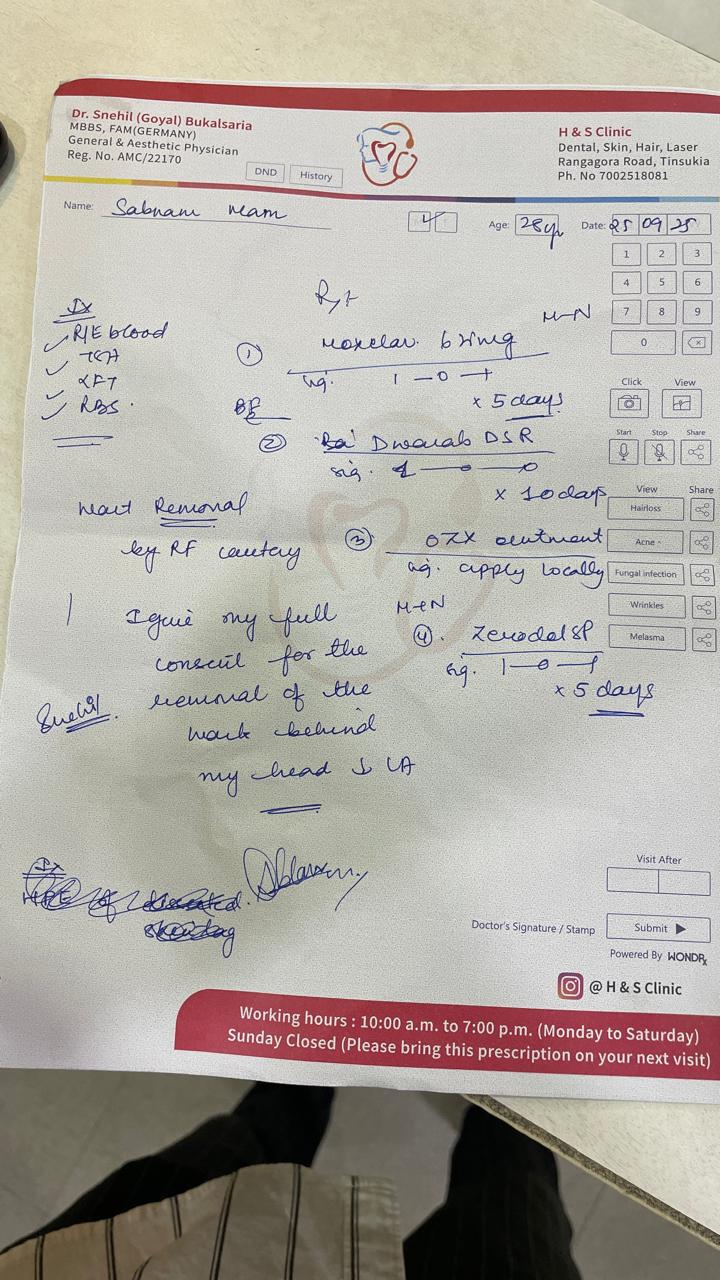 Dr. Snehil (Goyal) Bukalsaria
MBBS, FAM(GERMANY)
General & Aesthetic Physician
Reg. No. AMC/22170
DND
History
H & S Clinic
Dental, Skin, Hair, Laser
Rangagora Road, Tinsukia
Ph. No 7002518081
Name: Sabnam
Age: 28yr
Date: 25 09 25
1 2 3
4 5 6
7 8 9
0
Click View
Start Stop Share
View Share
Hairloss
Acne -
Fungal infection
Wrinkles
Melasma
Ix
R/E blood
LFT
RBS.
M-N
① Moxclav
sig. 1-0-1
x 5 days
BF
② DSR
sig. 1-0-0
x 10 days
Removal
by RF cautery
③ ointment
sig. apply locally
M-N
④. Zerodol SP
sig. 1-0-1
x 5 days
I give my full
consent for the
removal of the
behind
my head ↓ LA
Snehil.
Visit After
Doctor's Signature / Stamp
Submit
Powered By WONDRx
@ H & S Clinic
Working hours : 10:00 a.m. to 7:00 p.m. (Monday to Saturday)
Sunday Closed (Please bring this prescription on your next visit)